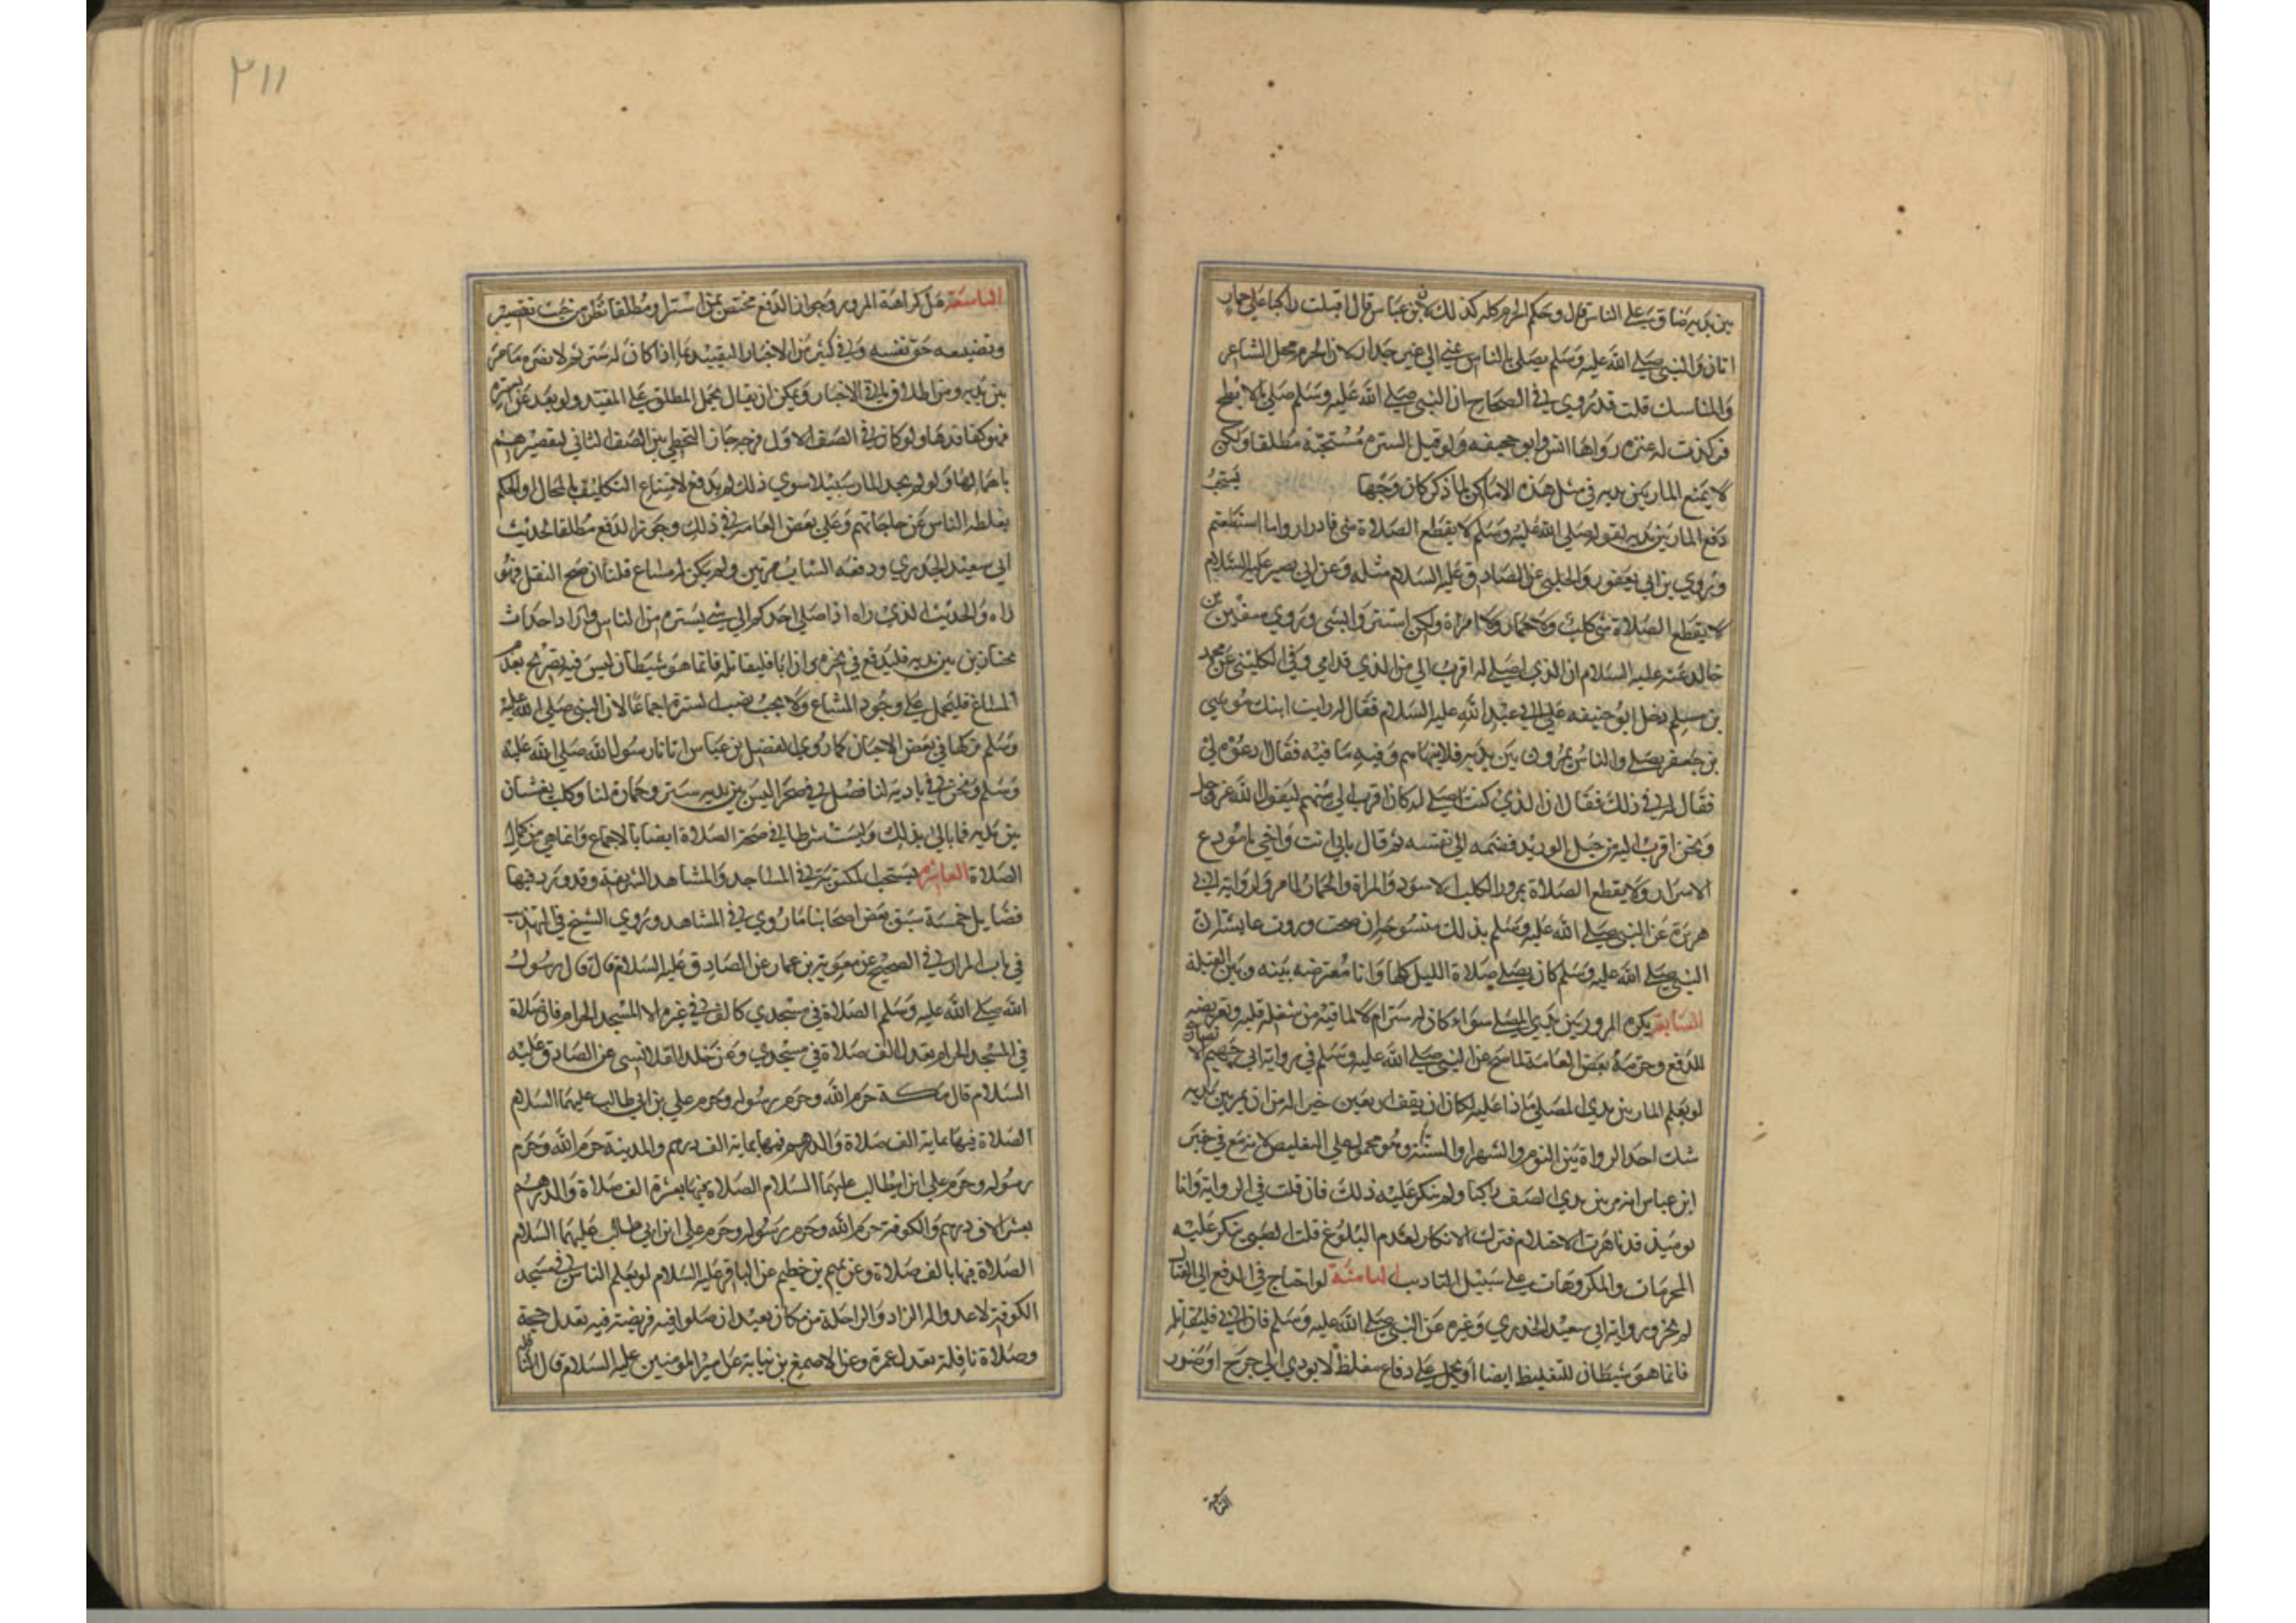 بين يديه ضاق على الناس قال وحكم الحرم كله كذلك لان ابن عباس قال اقبلت راكبا على حمار
اتان والنبي صلى الله عليه وسلم يصلي بالناس عني الى غير جدار لان الحرم محل المشاعر
والمناسك قلت قد روي في الصحاح ان النبي صلى الله عليه وسلم صلى بالابطح
فركزت له عنزه رواها انس وابو جحيفه ولو قيل السترة مستحبة مطلقا ولكن
لا يمنع المار بين يديه في مثل هذه الاماكن لما ذكر كان وجها يستحب
دفع المار بين يديه لقوله صلى الله عليه وسلم لا يقطع الصلاة شي فادراوا ما استطعتم
وروي بن ابي يعفور والحلبي عن الصادق عليه السلام مثله وعن ابي بصير عليه السلام
لا يقطع الصلاة شي كلب ولا حمار ولا امراة ولكن استتروا بشي وروي سفين بن
خالد عنه عليه السلام ان الذي اصلي له اقرب الي من الذي قدامي وفي الكليني عن محمد
بن مسلم دخل ابو حنيفه على ابي عبد الله عليه السلام فقال له رايت ابنك موسى
بن جعفر يصلي والناس يمرون بين يديه فلا ينهاهم وفيه ما فيه فقال ادعوه لي
فقال له في ذلك فقال ان الذي كنت اصلي له كان اقرب الي منهم ليقول الله عز وجل
ونحن اقرب اليه من حبل الوريد فضمه الى نفسه ثم قال بابي انت وامي يا مودع
الاسرار ولا يقطع الصلاة مرور الكلب الاسود والمراة والحمار لما مر ورواية ابي
هريرة عن النبي صلى الله عليه وسلم بذلك منسوخة ان صحت وروت عايشة ان
النبي صلى الله عليه وسلم كان يصلي صلاة الليل كلها وانا معترضه بينه وبين القبلة
السابعة يكره المرور بين يدي المصلي سواء كان له سترة ام لا لما فيه من شغل قلبه وتعريضه
للدفع وحرمه بعض العامة لما صح عن النبي صلى الله عليه وسلم في رواية ابي جهيم الانصاري
لو يعلم المار بين يدي المصلي ماذا عليه لكان ان يقف اربعين خيرا له من ان يمر بين يديه
شك احد الرواة بين اليوم والشهر والسنة وهو محمول على التغليظ لانه صح في خبر
ابن عباس انه مر بين يدي الصف راكبا ولم ينكر عليه ذلك فان قلت في الرواية وانا
يوميذ قد ناهزت الاحتلام فترك الانكار لعدم البلوغ قلت الصبي ينكر عليه
المحرمات والمكروهات على سبيل التاديب الثامنة لو احتاج في الدفع الى القتال
لم يجز ورواية ابي سعيد الخدري وغيره عن النبي صلى الله عليه وسلم فان ابي فليقاتله
فانما هو شيطان للتغليظ ايضا او يحمل على دفاع مغلظ لا يودي الى جرح او ضرر
التاسعة
٢١١
التاسعة هل كراهة المرور وجواز الدفع مختص بمن استتر او مطلقا نظر من حيث تقصيره
وتضييعه حق نفسه وفي كثير من الاخبار التقييد بما اذا كان له سترة ثم لا يضره ما مر
بين يديه ومن اطلاق باقي الاخبار ويمكن ان يقال بحمل المطلق على المقيد ولو بعد عن السترة
فهو كفاقدها ولو كان في الصف الاول فرجه جاز التخطي بين الصف الثاني لتقصيرهم
باهمالها ولو لم يجد المار سبيلا سوى ذلك لم يدفع لامتناع التكليف بالمحال او الحكم
بغلطه الناس عن حاجاتهم وغلى بعض العامه في ذلك وجوز الدفع مطلقا لحديث
ابي سعيد الخدري ودفعه الشاب مرتين ولم يكن له مساغ قلنا ان صح النقل فهو
راه والحديث الذي رواه اذا صلى احدكم الى شي يستره من الناس فاراد احد ان
يجتاز بين يديه فليدفع في نحره وان ابا فليقاتله فانما هو شيطان ليس فيه تصريح بعدم
المساغ فليحمل على وجود المساغ ولا يجب نصب السترة اجماعا لان النبي صلى الله عليه
وسلم تركها في بعض الاحيان كما روى الفضل بن عباس اتانا رسول الله صلى الله عليه
وسلم ونحن في بادية لنا فصلى في صحرا ليس بين يديه سترة وحمارة لنا وكلب يعبثان
بين يديه فما بالى بذلك وليست شرطا في صحة الصلاة ايضا بالاجماع وانما هي من كمال
الصلاة العاشرة يستحب لمن بمكة في المساجد والمشاهد الشريفة وقد ورد فيها
فضايل خمسة سبق بعض اصحابنا ما روي في المشاهد وروى الشيخ في التهذيب
في باب المزار في الصحيح عن معوية بن عمار عن الصادق عليه السلام قال قال رسول
الله صلى الله عليه وسلم الصلاة في مسجدي كالف في غيره الا المسجد الحرام فان صلاة
في المسجد الحرام تعدل الف صلاة في مسجدي وعن خلد القلانسي عن الصادق عليه
السلام قال مكة حرم الله وحرم رسوله وحرم علي بن ابي طالب عليهما السلام
الصلاة فيها بماية الف صلاة والدرهم فيها بماية الف درهم والمدينة حرم الله وحرم
رسوله وحرم علي ابن ابي طالب عليهما السلام الصلاة فيها بعشرة الف صلاة والدرهم
بعشرة الاف درهم والكوفة حرم الله وحرم رسوله وحرم علي ابن ابي طالب عليهما السلام
الصلاة فيها بالف صلاة وعن نميم بن خطيم عن الباقر عليه السلام لو يعلم الناس ما في مسجد
الكوفة لاعدوا له الزاد والراحلة من مكان بعيد ان صلوا فيه فريضة فيه تعدل حجة
وصلاة نافلة تعدل عمرة وعن الاصبغ بن نباتة عن امير المومنين عليه السلام قال النافلة